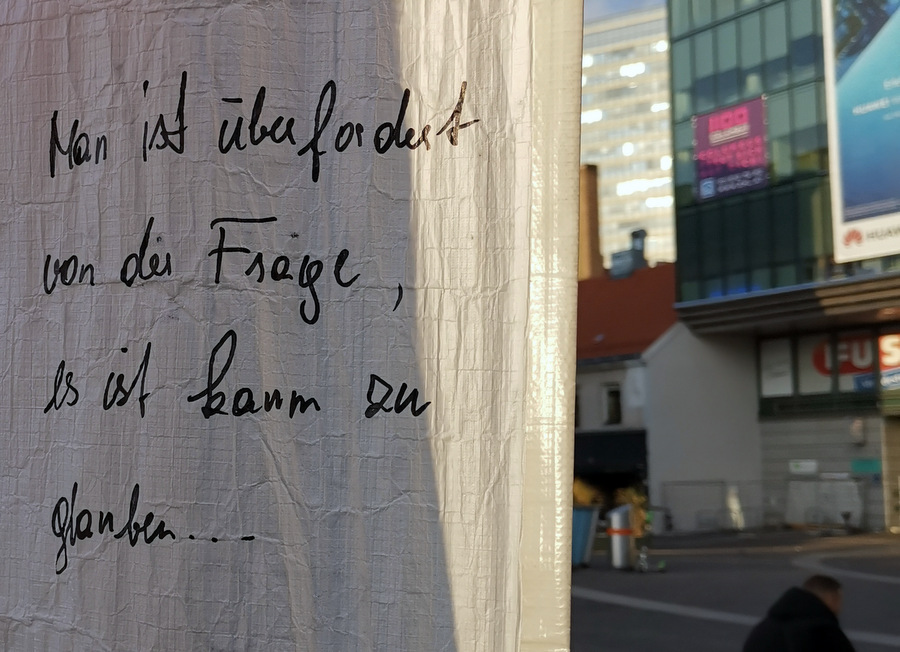 Man ist überfordert
von der Frage,
es ist kaum zu
glauben....
HUAW
FUS